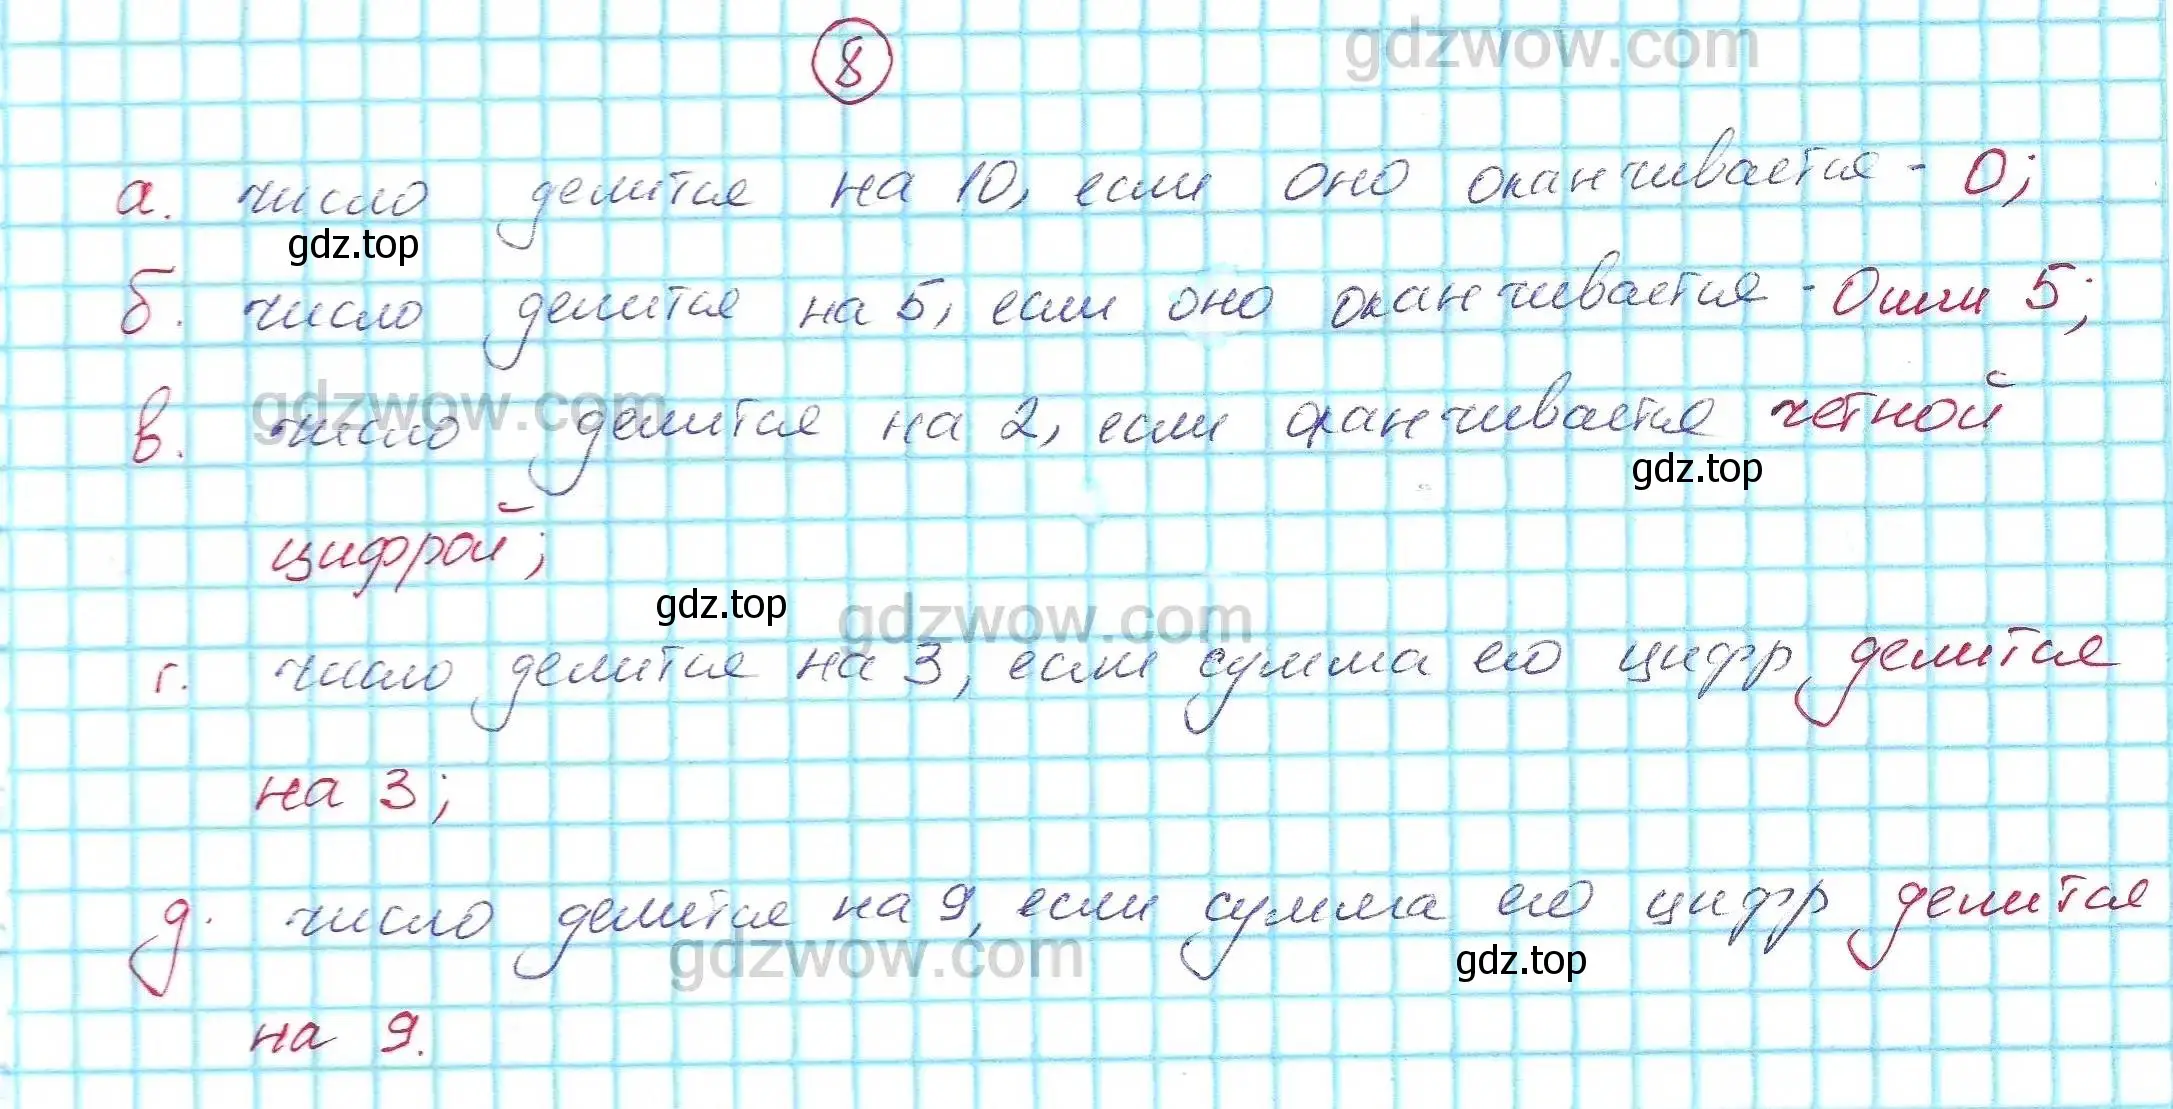 8
gdzwow.com
а. число делится на 10, если оно оканчивается - 0;
gdz.top
б. число делится на 5, если оно оканчивается - 0 или 5;
gdzwow.com
в. число делится на 2, если оканчивается четной
gdz.top
цифрой;
gdz.top
gdzwow.com
г. число делится на 3, если сумма его цифр делится
на 3;
д. число делится на 9, если сумма его цифр делится
gdzwow.com
gdz.top
на 9.